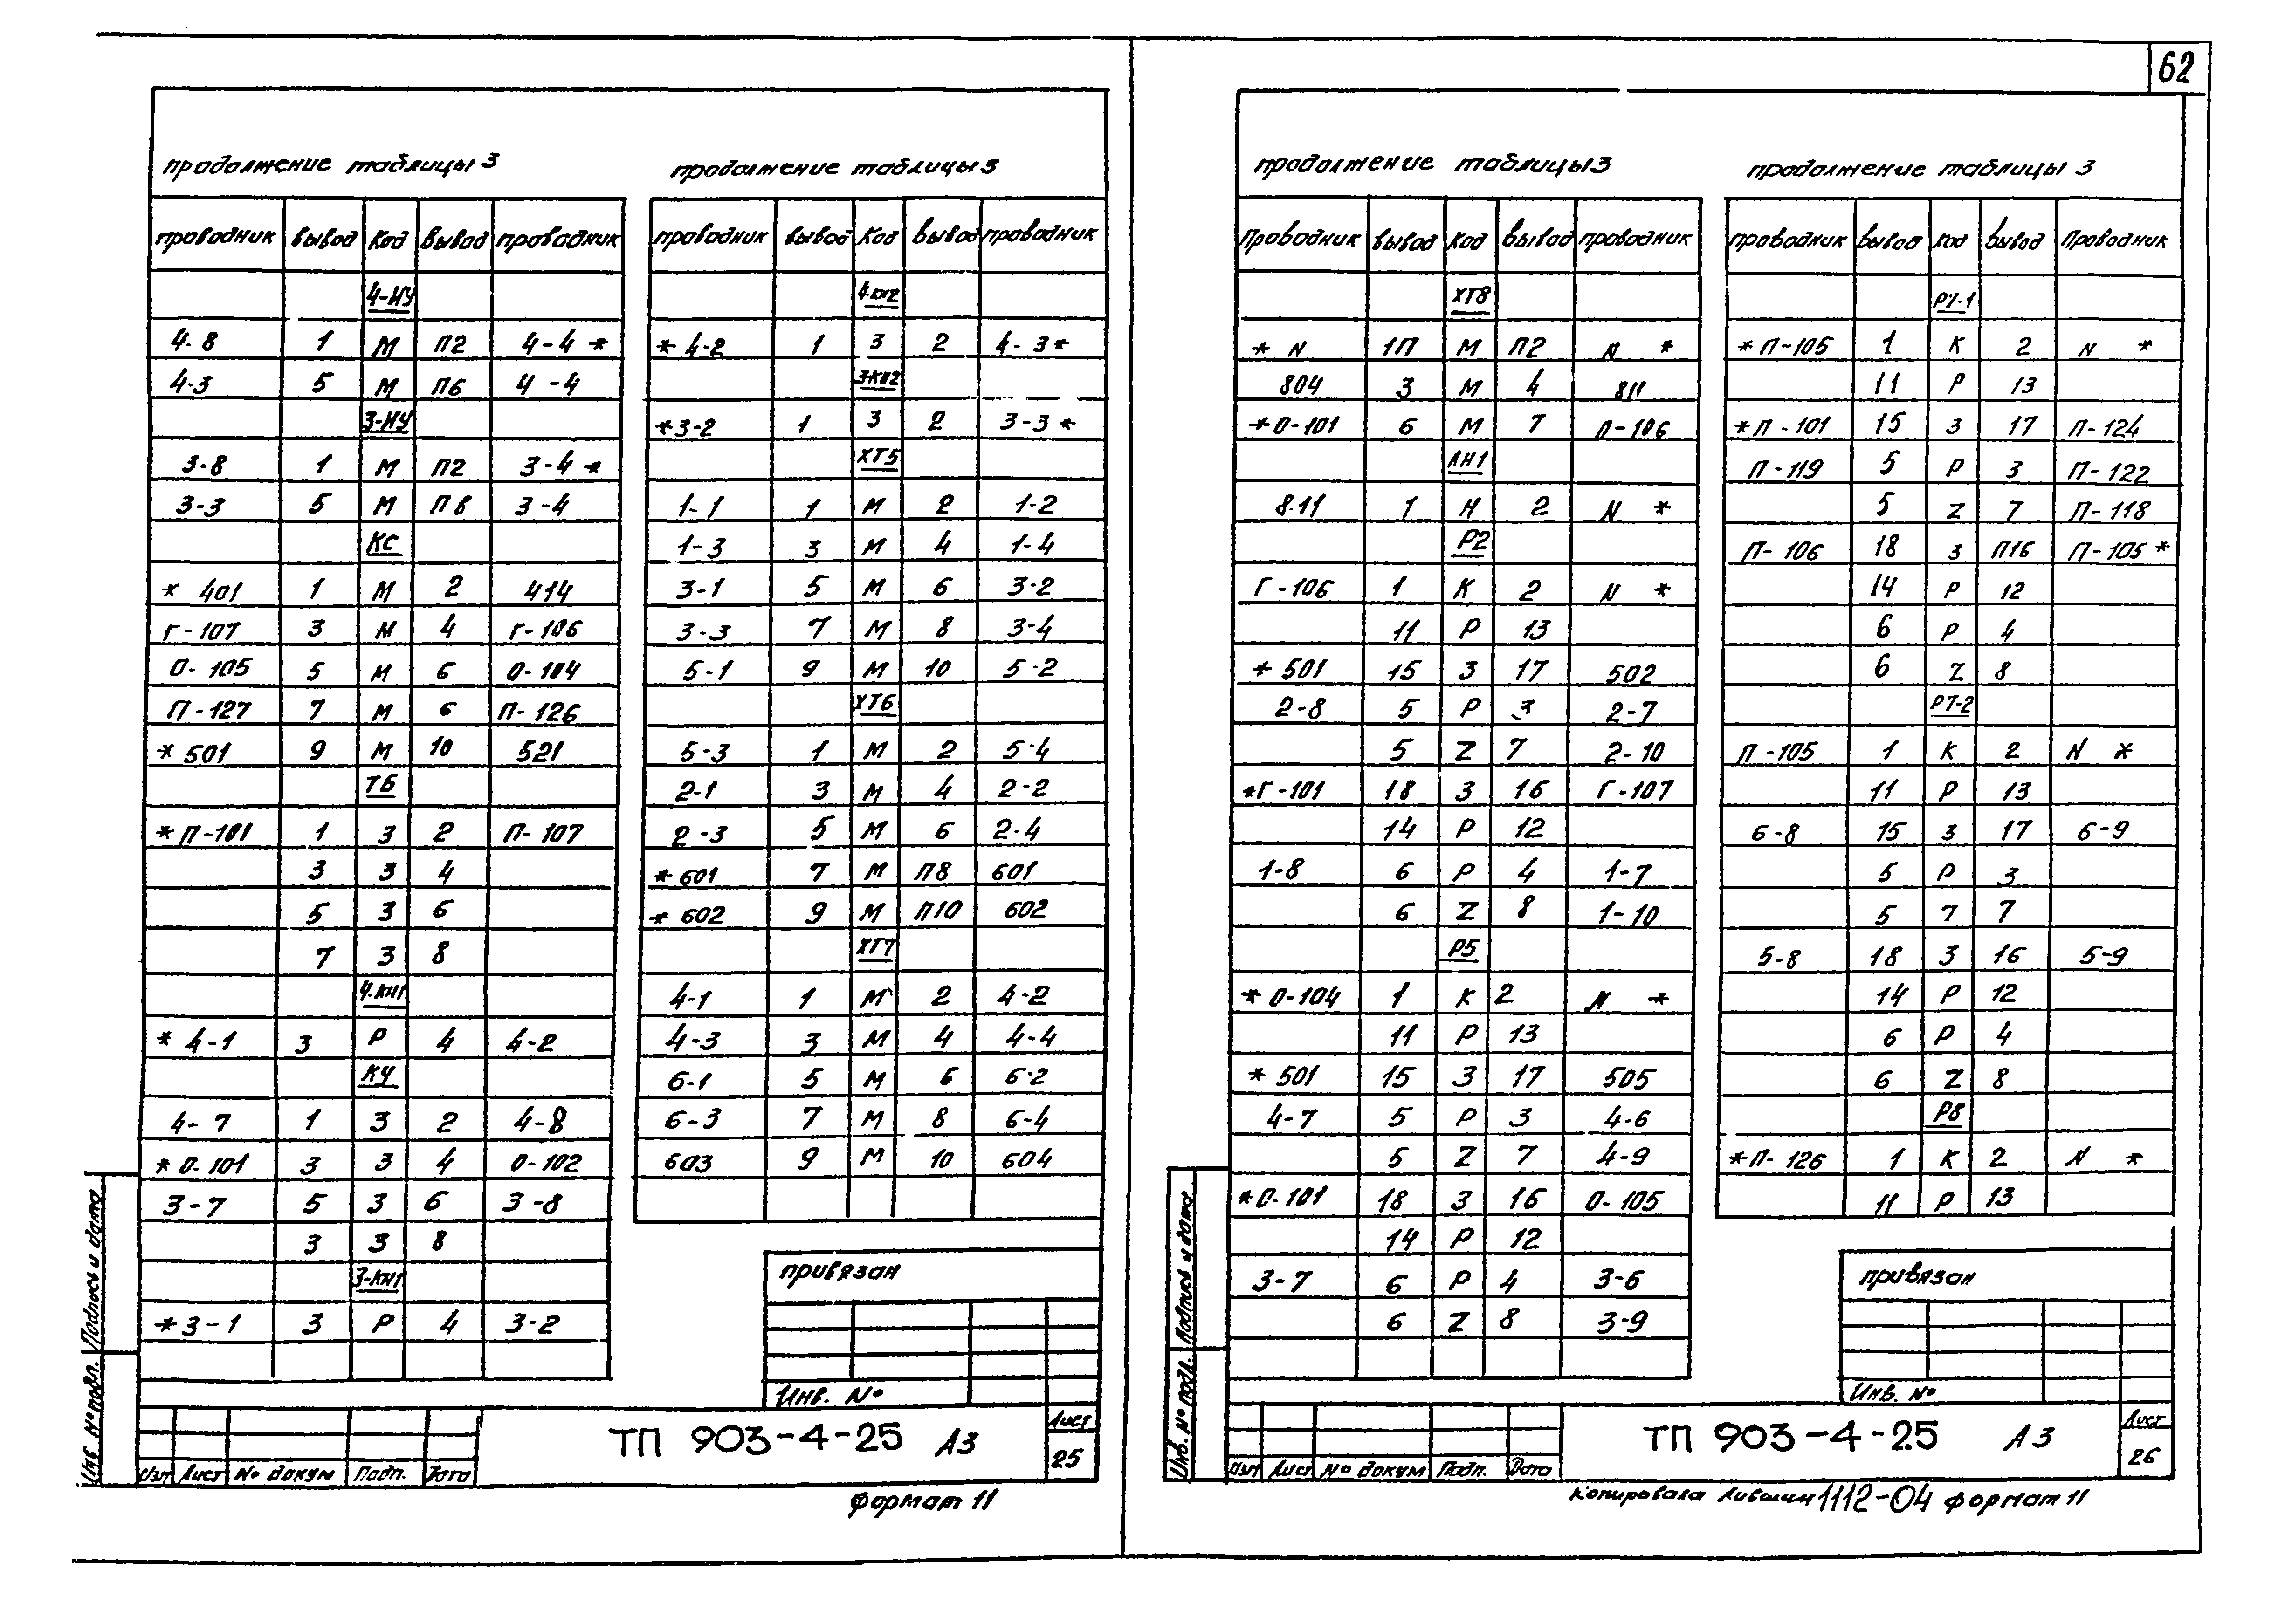 62
продолжение таблицы 3
проводник вывод код вывод проводник
4-ИУ
4-8 1 М П2 4-4 *
4-3 5 М П6 4-4
3-ИУ
3-8 1 М П2 3-4 *
3-3 5 М П6 3-4
КС
* 401 1 М 2 414
Г-107 3 М 4 Г-106
О-105 5 М 6 О-104
П-127 7 М 6 П-126
* 501 9 М 10 521
ТБ
* П-101 1 З 2 П-107
3 З 4
5 З 6
7 З 8
4-КН1
* 4-1 3 Р 4 4-2
КУ
4-7 1 З 2 4-8
* О-101 3 З 4 О-102
3-7 5 З 6 3-8
3 З 8
3-КН1
* 3-1 3 Р 4 3-2
продолжение таблицы 3
проводник вывод код вывод проводник
4-КН2
* 4-2 1 З 2 4-3 *
3-КН2
* 3-2 1 З 2 3-3 *
ХТ5
1-1 1 М 2 1-2
1-3 3 М 4 1-4
3-1 5 М 6 3-2
3-3 7 М 8 3-4
5-1 9 М 10 5-2
ХТ6
5-3 1 М 2 5-4
2-1 3 М 4 2-2
2-3 5 М 6 2-4
* 601 7 М П8 601
* 602 9 М П10 602
ХТ7
4-1 1 М 2 4-2
4-3 3 М 4 4-4
6-1 5 М 6 6-2
6-3 7 М 8 6-4
603 9 М 10 604
привязан
Инв. №
ТП 903-4-25 А3
Лист
25
Изм Лист № докум Подп. Дата
Инв. № подл. Подпись и дата
формат 11
продолжение таблицы 3
проводник вывод код вывод проводник
ХТ8
* N 1П М П2 N *
804 3 М 4 811
* О-101 6 М 7 П-106
ЛН1
8.11 1 Н 2 N *
Р2
Г-106 1 К 2 N *
11 Р 13
* 501 15 З 17 502
2-8 5 Р 3 2-7
5 Z 7 2-10
* Г-101 18 З 16 Г-107
14 Р 12
1-8 6 Р 4 1-7
6 Z 8 1-10
Р5
* О-104 1 К 2 N *
11 Р 13
* 501 15 З 17 505
4-7 5 Р 3 4-6
5 Z 7 4-9
* О-101 18 З 16 О-105
14 Р 12
3-7 6 Р 4 3-6
6 Z 8 3-9
продолжение таблицы 3
проводник вывод код вывод проводник
Р7-1
* П-105 1 К 2 N *
11 Р 13
* П-101 15 З 17 П-124
П-119 5 Р 3 П-122
5 Z 7 П-118
П-106 18 З П16 П-105 *
14 Р 12
6 Р 4
6 Z 8
Р7-2
П-105 1 К 2 N *
11 Р 13
6-8 15 З 17 6-9
5 Р 3
5 7 7
5-8 18 З 16 5-9
14 Р 12
6 Р 4
6 Z 8
Р8
* П-126 1 К 2 N *
11 Р 13
привязан
Инв. №
ТП 903-4-25 А3
Лист
26
Изм Лист № докум Подп. Дата
Инв. № подл. Подпись и дата
Копировала Лившиц 1112-04 формат 11